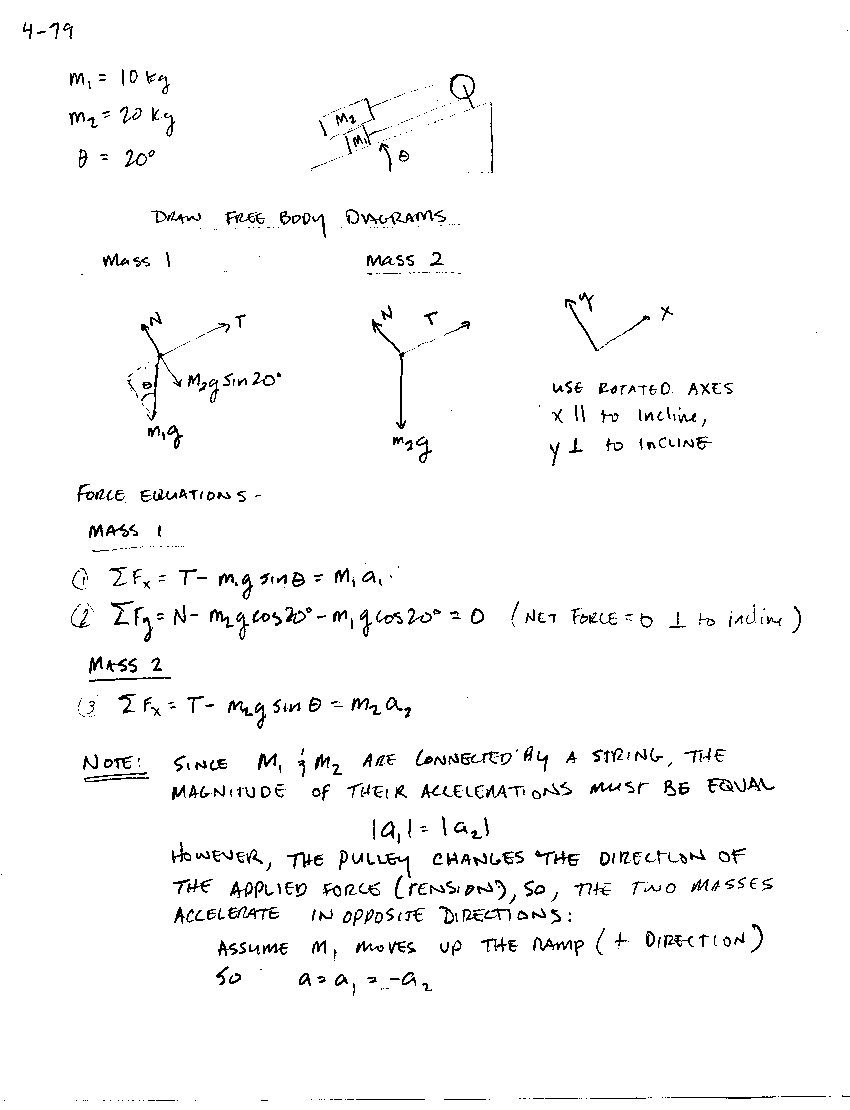 4-79
m₁ = 10 kg
m₂ = 20 kg
θ = 20°
M₂
M₁
θ
DRAW FREE BODY DIAGRAMS
Mass 1
Mass 2
N
T
θ
M₂g sin 20°
m₁g
N
T
m₂g
y
x
USE ROTATED AXES
x || to Incline,
y ⊥ to INCLINE
FORCE EQUATIONS -
MASS 1
① ΣFx = T - m₁g sinθ = M₁a₁
② ΣFy = N - m₂g cos20° - m₁g cos20° = 0 (NET FORCE = 0 ⊥ to incline)
MASS 2
③ ΣFx = T - m₂g sin θ = m₂a₂
NOTE: SINCE M₁ & M₂ ARE CONNECTED BY A STRING, THE
MAGNITUDE OF THEIR ACCELERATIONS MUST BE EQUAL
|a₁| = |a₂|
HOWEVER, THE PULLEY CHANGES THE DIRECTION OF
THE APPLIED FORCE (TENSION), SO, THE TWO MASSES
ACCELERATE IN OPPOSITE DIRECTIONS:
ASSUME M₁ MOVES UP THE RAMP (+ DIRECTION)
SO a = a₁ = -a₂